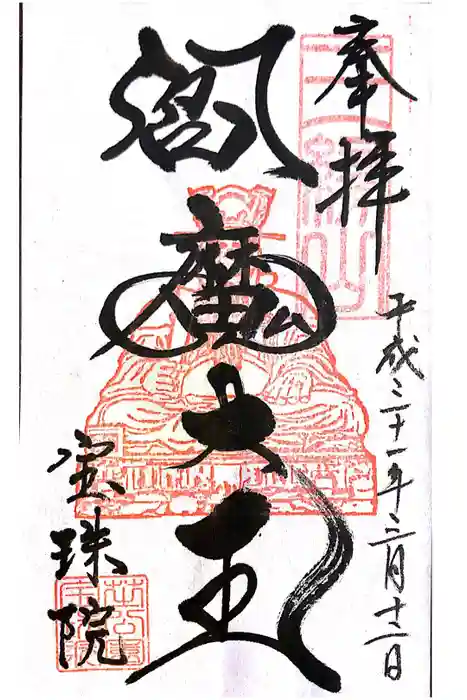 奉拝
平成三十一年二月十二日
閻魔大王
宝珠院